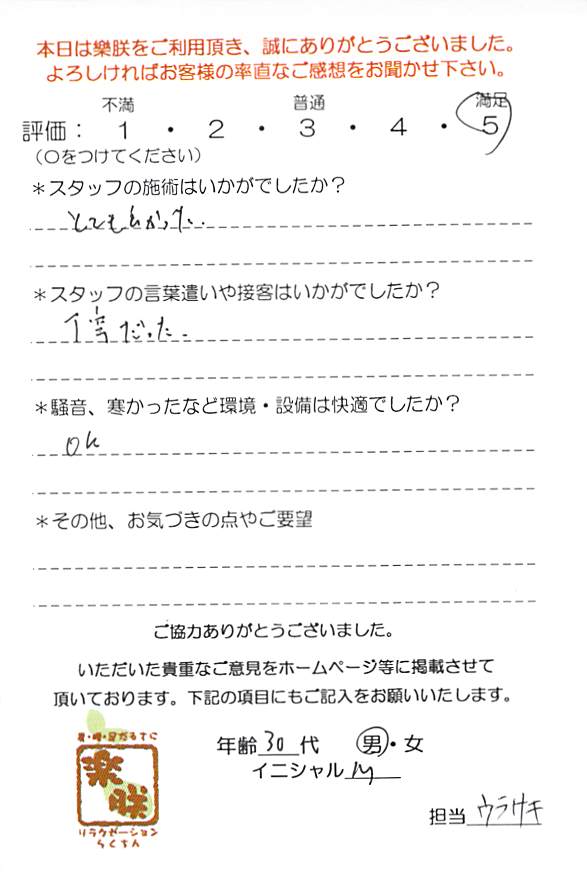 本日は樂朕をご利用頂き、誠にありがとうございました。
よろしければお客様の率直なご感想をお聞かせ下さい。
不満 普通 満足
評価： 1 ・ 2 ・ 3 ・ 4 ・ 5
（○をつけてください）
＊スタッフの施術はいかがでしたか？
とてもよかった.
＊スタッフの言葉遣いや接客はいかがでしたか？
丁寧だった.
＊騒音、寒かったなど環境・設備は快適でしたか？
OK
＊その他、お気づきの点やご要望
ご協力ありがとうございました。
いただいた貴重なご意見をホームページ等に掲載させて
頂いております。下記の項目にもご記入をお願いいたします。
年齢 30 代 男・女
イニシャル M
担当 ウラサキ
樂
朕
リラクゼーション
らくちん